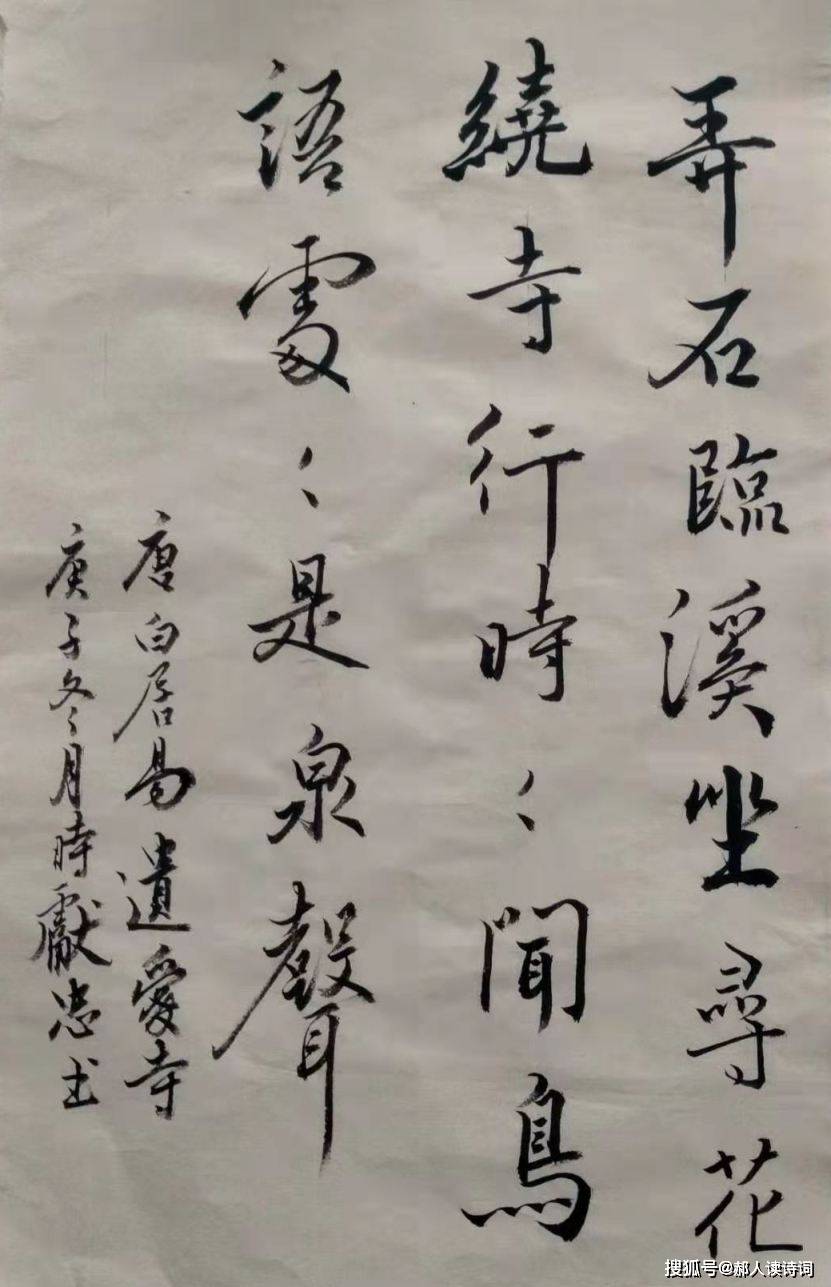 弄石臨溪坐尋花
繞寺行時〻聞鳥
語處〻是泉聲
唐白居易遺愛寺
庚子冬月時獻忠书
搜狐号@郝人读诗词